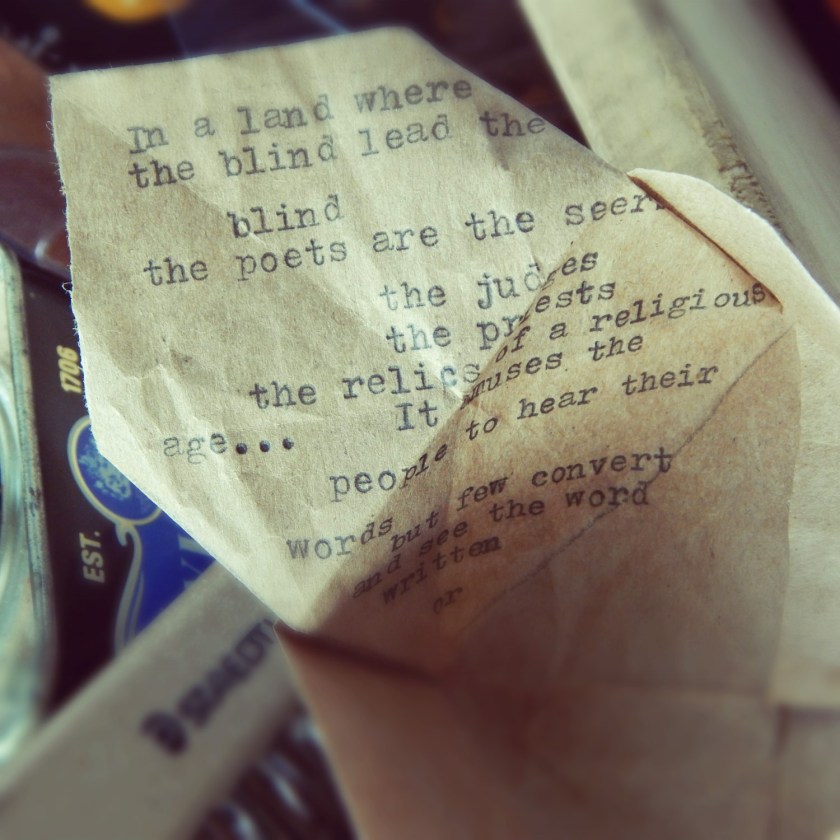 In a land where
the blind lead the
blind
the poets are the seers
the judges
the priests
the relics of a religious
age... It amuses the
people to hear their
words but few convert
and see the word
written
or
1706
EST.